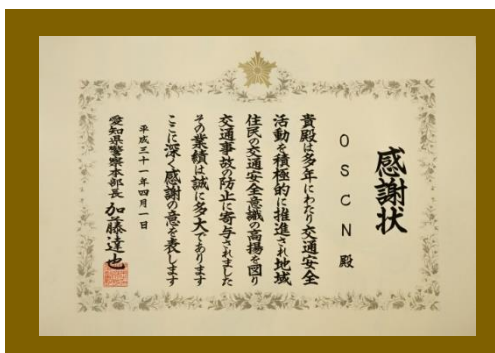 感謝状
OSCN 殿
貴殿は多年にわたり交通安全
活動を積極的に推進され地域
住民の交通安全意識の高揚を図り
交通事故の防止に寄与されました
その業績は誠に多大であります
ここに深く感謝の意を表します
平成三十一年四月一日
愛知県警察本部長 加藤達也